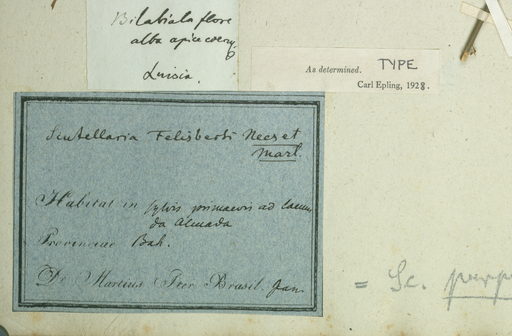 Bilabiala flore
alba apice coeru
Luisia.
As determined. TYPE
Carl Epling, 1928.
Scutellaria Felisberti Nees et
Mart.
Habitat in sylvis primaevis ad Lacum
da Almada
Provinciae Bah.
Dr Martius Iter Brasil. Jan.
= Sc. purp